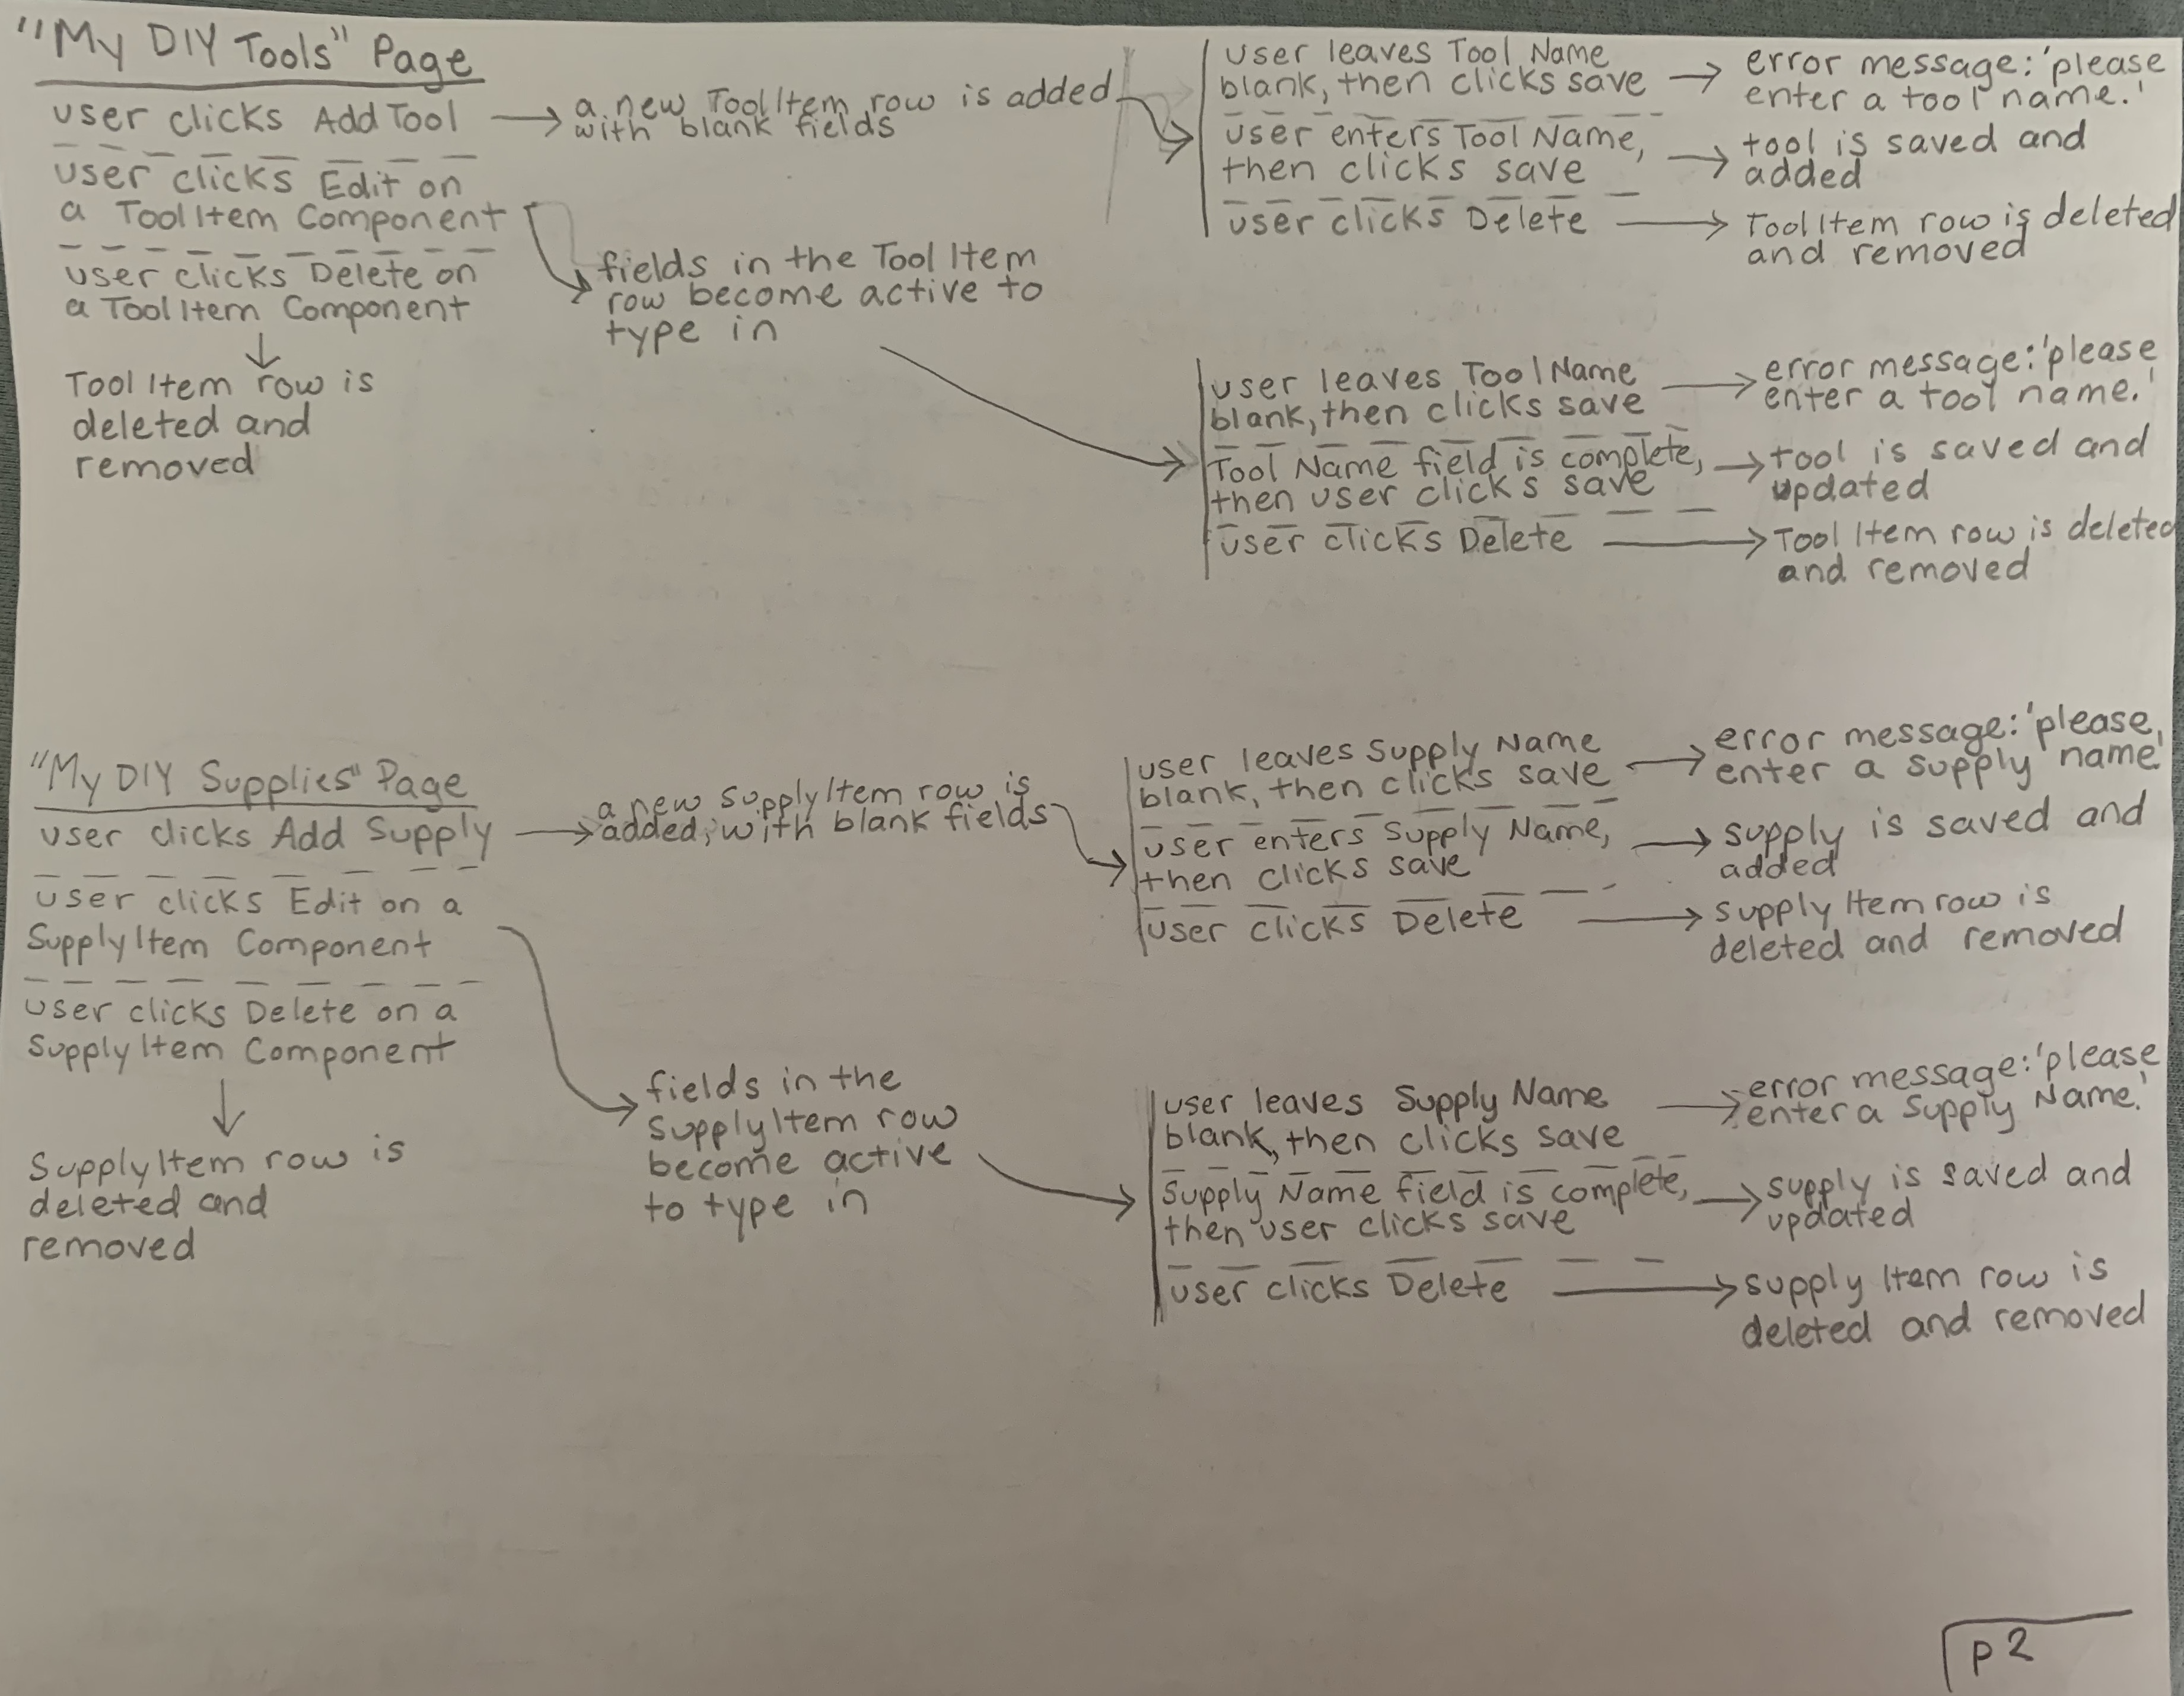 "My DIY Tools" Page
user clicks Add Tool
a new ToolItem row is added
with blank fields
user leaves Tool Name
blank, then clicks save
error message: 'please
enter a tool name.'
user enters Tool Name,
then clicks save
tool is saved and
added
user clicks Delete
ToolItem row is deleted
and removed
user clicks Edit on
a ToolItem Component
fields in the Tool Item
row become active to
type in
user leaves Tool Name
blank, then clicks save
error message: 'please
enter a tool name.'
Tool Name field is complete,
then user clicks save
tool is saved and
updated
user clicks Delete
Tool Item row is deleted
and removed
user clicks Delete on
a ToolItem Component
Tool Item row is
deleted and
removed
"My DIY Supplies" Page
user clicks Add Supply
a new SupplyItem row is
added, with blank fields
user leaves Supply Name
blank, then clicks save
error message: 'please
enter a supply name'
user enters Supply Name,
then clicks save
supply is saved and
added
user clicks Delete
supply Item row is
deleted and removed
user clicks Edit on a
SupplyItem Component
fields in the
SupplyItem row
become active
to type in
user leaves Supply Name
blank, then clicks save
error message: 'please
enter a Supply Name.'
Supply Name field is complete,
then user clicks save
supply is saved and
updated
user clicks Delete
supply Item row is
deleted and removed
user clicks Delete on a
SupplyItem Component
SupplyItem row is
deleted and
removed
p 2